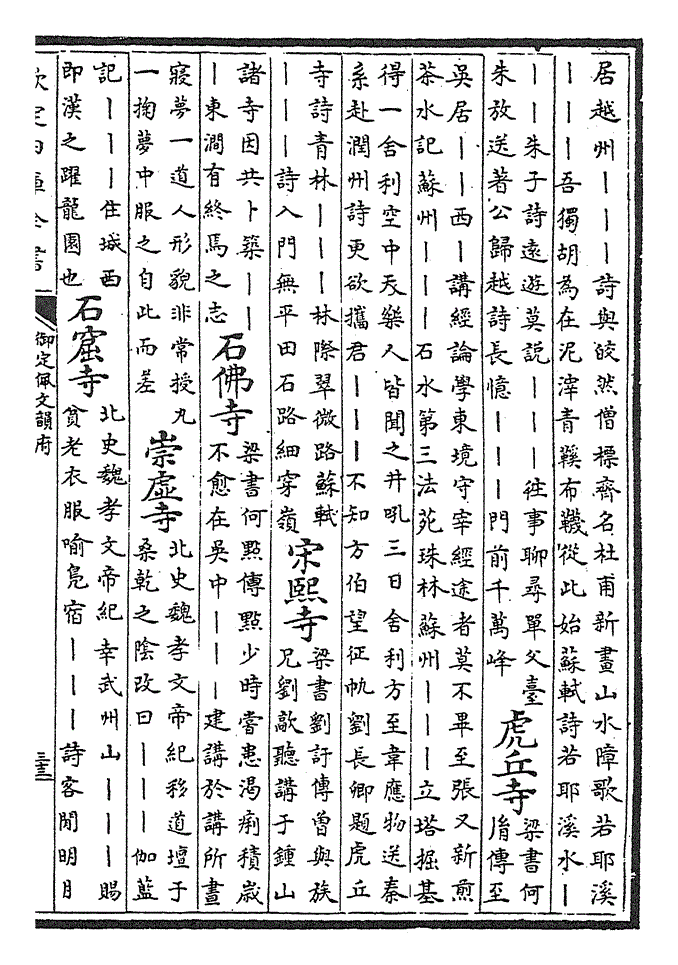 居越州｜｜｜詩與皎然僧標齊名杜甫新畫山水障歌若耶溪
｜｜｜吾獨胡為在泥滓青鞵布韈從此始蘇軾詩若耶溪水｜
｜｜朱子詩遠遊莫說｜｜｜往事聊尋單父臺
朱放送著公歸越詩長憶｜｜｜門前千萬峰
虎丘寺
梁書何
胤傳至
吳居｜｜西｜講經論學東境守宰經途者莫不畢至張又新煎
茶水記蘇州｜｜｜石水第三法苑珠林蘇州｜｜｜立塔掘基
得一舍利空中天樂人皆聞之井吼三日舍利方至韋應物送秦
系赴潤州詩更欲攜君｜｜｜不知方伯望征帆劉長卿題虎丘
寺詩青林｜｜｜林際翠微路蘇軾
｜｜｜詩入門無平田石路細穿嶺
宋熙寺
梁書劉訏傳曾與族
兄劉歊聽講于鍾山
諸寺因共卜築｜｜
｜東澗有終焉之志
石佛寺
梁書何點傳點少時嘗患渴痢積歲
不愈在吳中｜｜｜建講於講所晝
寢夢一道人形貌非常授丸
一掬夢中服之自此而差
崇虛寺
北史魏孝文帝紀移道壇于
桑乾之陰改曰｜｜｜伽藍
記｜｜｜住城西
即漢之躍龍園也
石窟寺
北史魏孝文帝紀幸武州山｜｜｜賜
貧老衣服喻鳧宿｜｜｜詩客閒明月
欽定四庫全書
御定佩文韻府